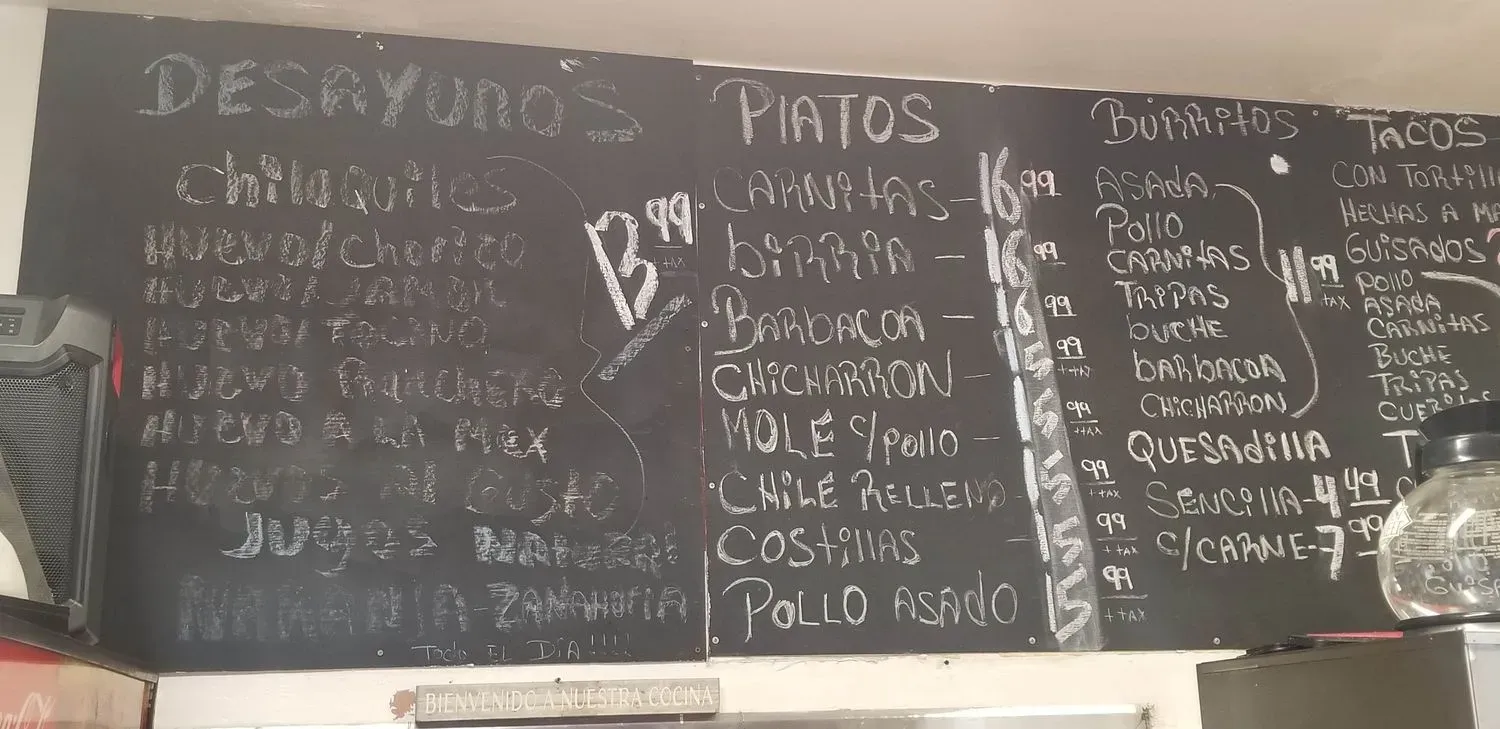 DESAYUNOS
Chilaquiles
HUEVO/Chorizo
HUEVO/JAMON
HUEVO/TOCINO
HUEVO RANCHERO
HUEVO A LA MEX
HUEVOS AL GUSTO
13 99
+TAX
JUGOS NATURAL
NARANJA-ZANAHORIA
Todo EL DIA !!!!
PlATOS
CARNitAS - 16 99
biRRiA - 16 99
BARBACOA - 16 99
CHiCHARRON - 15 99
++AX
MOLE c/pollo - 15 99
++AX
CHILE RELLENO - 15 99
++AX
COStillAS - 15 99
++AX
POLLO ASADO 15 99
++AX
BURRitOS
ASAdA
Pollo
CARNitAS
TRiPAS
bUCHE
bARbACOA
CHiCHARRON
11 99
+AX
QUESAdillA
SENCillA-4 49
c/CARNE-7 99
TACOS
CON TORtill
HECHAS A MA
GUiSADOS
pollo
ASAdA
CARNitAS
BUCHE
TRiPAS
BIENVENIDO A NUESTRA COCINA